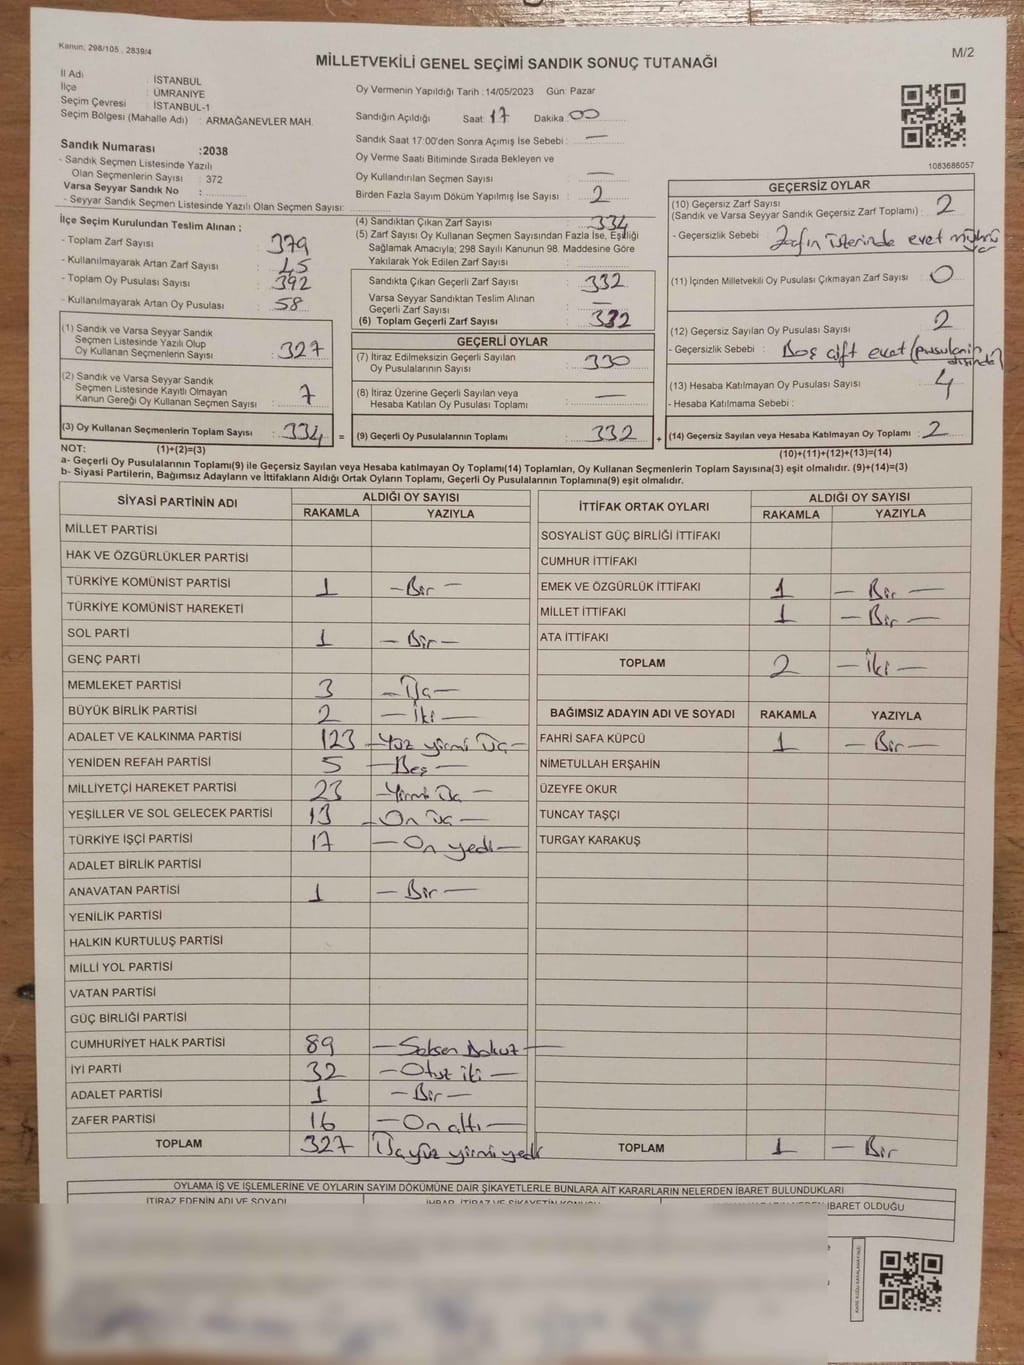 Kanun, 298/105 , 2839/4
M/2
MİLLETVEKİLİ GENEL SEÇİMİ SANDIK SONUÇ TUTANAĞI
İl Adı : İSTANBUL
İlçe : ÜMRANİYE
Seçim Çevresi : İSTANBUL-1
Seçim Bölgesi (Mahalle Adı) : ARMAĞANEVLER MAH.
Sandık Numarası :2038
- Sandık Seçmen Listesinde Yazılı
Olan Seçmenlerin Sayısı : 372
Varsa Seyyar Sandık No :
- Seyyar Sandık Listesinde Yazılı Olan Seçmen Sayısı:
Oy Vermenin Yapıldığı Tarih :14/05/2023 Gün: Pazar
Sandığın Açıldığı Saat: 17 Dakika: 00
Sandık Saat 17:00'den Sonra Açımış İse Sebebi : —
Oy Verme Saati Bitiminde Sırada Bekleyen ve
Oy Kullandırılan Seçmen Sayısı : —
Birden Fazla Sayım Döküm Yapılmış İse Sayısı : 2
1083686057
İlçe Seçim Kurulundan Teslim Alınan ;
- Toplam Zarf Sayısı : 379
- Kullanılmayarak Artan Zarf Sayısı : 45
- Toplam Oy Pusulası Sayısı : 392
- Kullanılmayarak Artan Oy Pusulası : 58
(1) Sandık ve Varsa Seyyar Sandık
Seçmen Listesinde Yazılı Olup
Oy Kullanan Seçmenlerin Sayısı : 327
(2) Sandık ve Varsa Seyyar Sandık
Seçmen Listesinde Kayıtlı Olmayan
Kanun Gereği Oy Kullanan Seçmen Sayısı : 7
(3) Oy Kullanan Seçmenlerin Toplam Sayısı : 334 =
(1)+(2)=(3)
(4) Sandıktan Çıkan Zarf Sayısı : 334
(5) Zarf Sayısı Oy Kullanan Seçmen Sayısından Fazla İse, Eşitliği
Sağlamak Amacıyla; 298 Sayılı Kanunun 98. Maddesine Göre
Yakılarak Yok Edilen Zarf Sayısı :
Sandıkta Çıkan Geçerli Zarf Sayısı : 332
Varsa Seyyar Sandıktan Teslim Alınan
Geçerli Zarf Sayısı : —
(6) Toplam Geçerli Zarf Sayısı : 332
GEÇERLİ OYLAR
(7) İtiraz Edilmeksizin Geçerli Sayılan
Oy Pusulalarının Sayısı : 330
(8) İtiraz Üzerine Geçerli Sayılan veya
Hesaba Katılan Oy Pusulası Toplamı : —
(9) Geçerli Oy Pusulalarının Toplamı : 332 +
GEÇERSİZ OYLAR
(10) Geçersiz Zarf Sayısı : 2
(Sandık ve Varsa Seyyar Sandık Geçersiz Zarf Toplamı)
- Geçersizlik Sebebi : Zarfın üsterinde evet mührü var
(11) İçinden Milletvekili Oy Pusulası Çıkmayan Zarf Sayısı : 0
(12) Geçersiz Sayılan Oy Pusulası Sayısı : 2
- Geçersizlik Sebebi : Boş çift evet (pusulanın dışında)
(13) Hesaba Katılmayan Oy Pusulası Sayısı : 4
- Hesaba Katılmama Sebebi :
(14) Geçersiz Sayılan veya Hesaba Katılmayan Oy Toplamı : 2
(10)+(11)+(12)+(13)=(14)
NOT:
a- Geçerli Oy Pusulalarının Toplamı(9) ile Geçersiz Sayılan veya Hesaba katılmayan Oy Toplamı(14) Toplamları, Oy Kullanan Seçmenlerin Toplam Sayısına(3) eşit olmalıdır. (9)+(14)=(3)
b- Siyasi Partilerin, Bağımsız Adayların ve İttifakların Aldığı Ortak Oyların Toplamı, Geçerli Oy Pusulalarının Toplamına(9) eşit olmalıdır.
SİYASİ PARTİNİN ADI ALDIĞI OY SAYISI
RAKAMLA YAZIYLA
MİLLET PARTİSİ
HAK VE ÖZGÜRLÜKLER PARTİSİ
TÜRKİYE KOMÜNİST PARTİSİ 1 — Bir —
TÜRKİYE KOMÜNİST HAREKETİ
SOL PARTİ 1 — Bir —
GENÇ PARTİ
MEMLEKET PARTİSİ 3 — Üç —
BÜYÜK BİRLİK PARTİSİ 2 — İki —
ADALET VE KALKINMA PARTİSİ 123 — Yüz yirmi üç —
YENİDEN REFAH PARTİSİ 5 — Beş —
MİLLİYETÇİ HAREKET PARTİSİ 23 — Yirmi üç —
YEŞİLLER VE SOL GELECEK PARTİSİ 13 — On üç —
TÜRKİYE İŞÇİ PARTİSİ 17 — On yedi —
ADALET BİRLİK PARTİSİ
ANAVATAN PARTİSİ 1 — Bir —
YENİLİK PARTİSİ
HALKIN KURTULUŞ PARTİSİ
MİLLİ YOL PARTİSİ
VATAN PARTİSİ
GÜÇ BİRLİĞİ PARTİSİ
CUMHURİYET HALK PARTİSİ 89 — Seksen dokuz —
İYİ PARTİ 32 — Otuz iki —
ADALET PARTİSİ 1 — Bir —
ZAFER PARTİSİ 16 — On altı —
TOPLAM 327 Üçyüz yirmi yedi
İTTİFAK ORTAK OYLARI ALDIĞI OY SAYISI
RAKAMLA YAZIYLA
SOSYALİST GÜÇ BİRLİĞİ İTTİFAKI
CUMHUR İTTİFAKI
EMEK VE ÖZGÜRLÜK İTTİFAKI 1 — Bir —
MİLLET İTTİFAKI 1 — Bir —
ATA İTTİFAKI
TOPLAM 2 — İki —
BAĞIMSIZ ADAYIN ADI VE SOYADI RAKAMLA YAZIYLA
FAHRİ SAFA KÜPCÜ 1 — Bir —
NİMETULLAH ERŞAHİN
ÜZEYFE OKUR
TUNCAY TAŞÇI
TURGAY KARAKUŞ
TOPLAM 1 — Bir
OYLAMA İŞ VE İŞLEMLERİNE VE OYLARIN SAYIM DÖKÜMÜNE DAİR ŞİKAYETLERLE BUNLARA AİT KARARLARIN NELERDEN İBARET BULUNDUKLARI
İTİRAZ EDENİN ADI VE SOYADI
İHBAR, İTİRAZ VE ŞİKAYETİN KONUSU
İBARET OLDUĞU